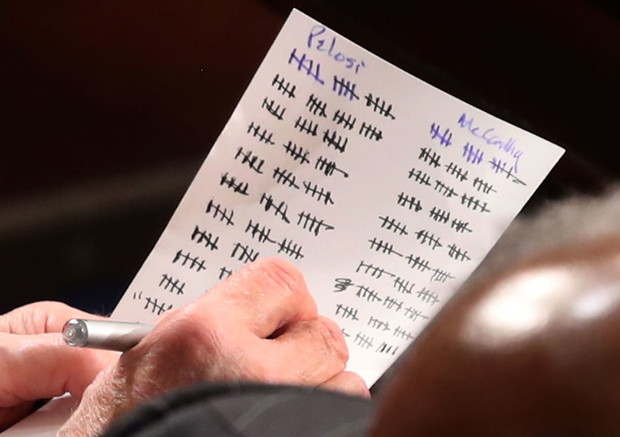 Pelosi
McCarthy